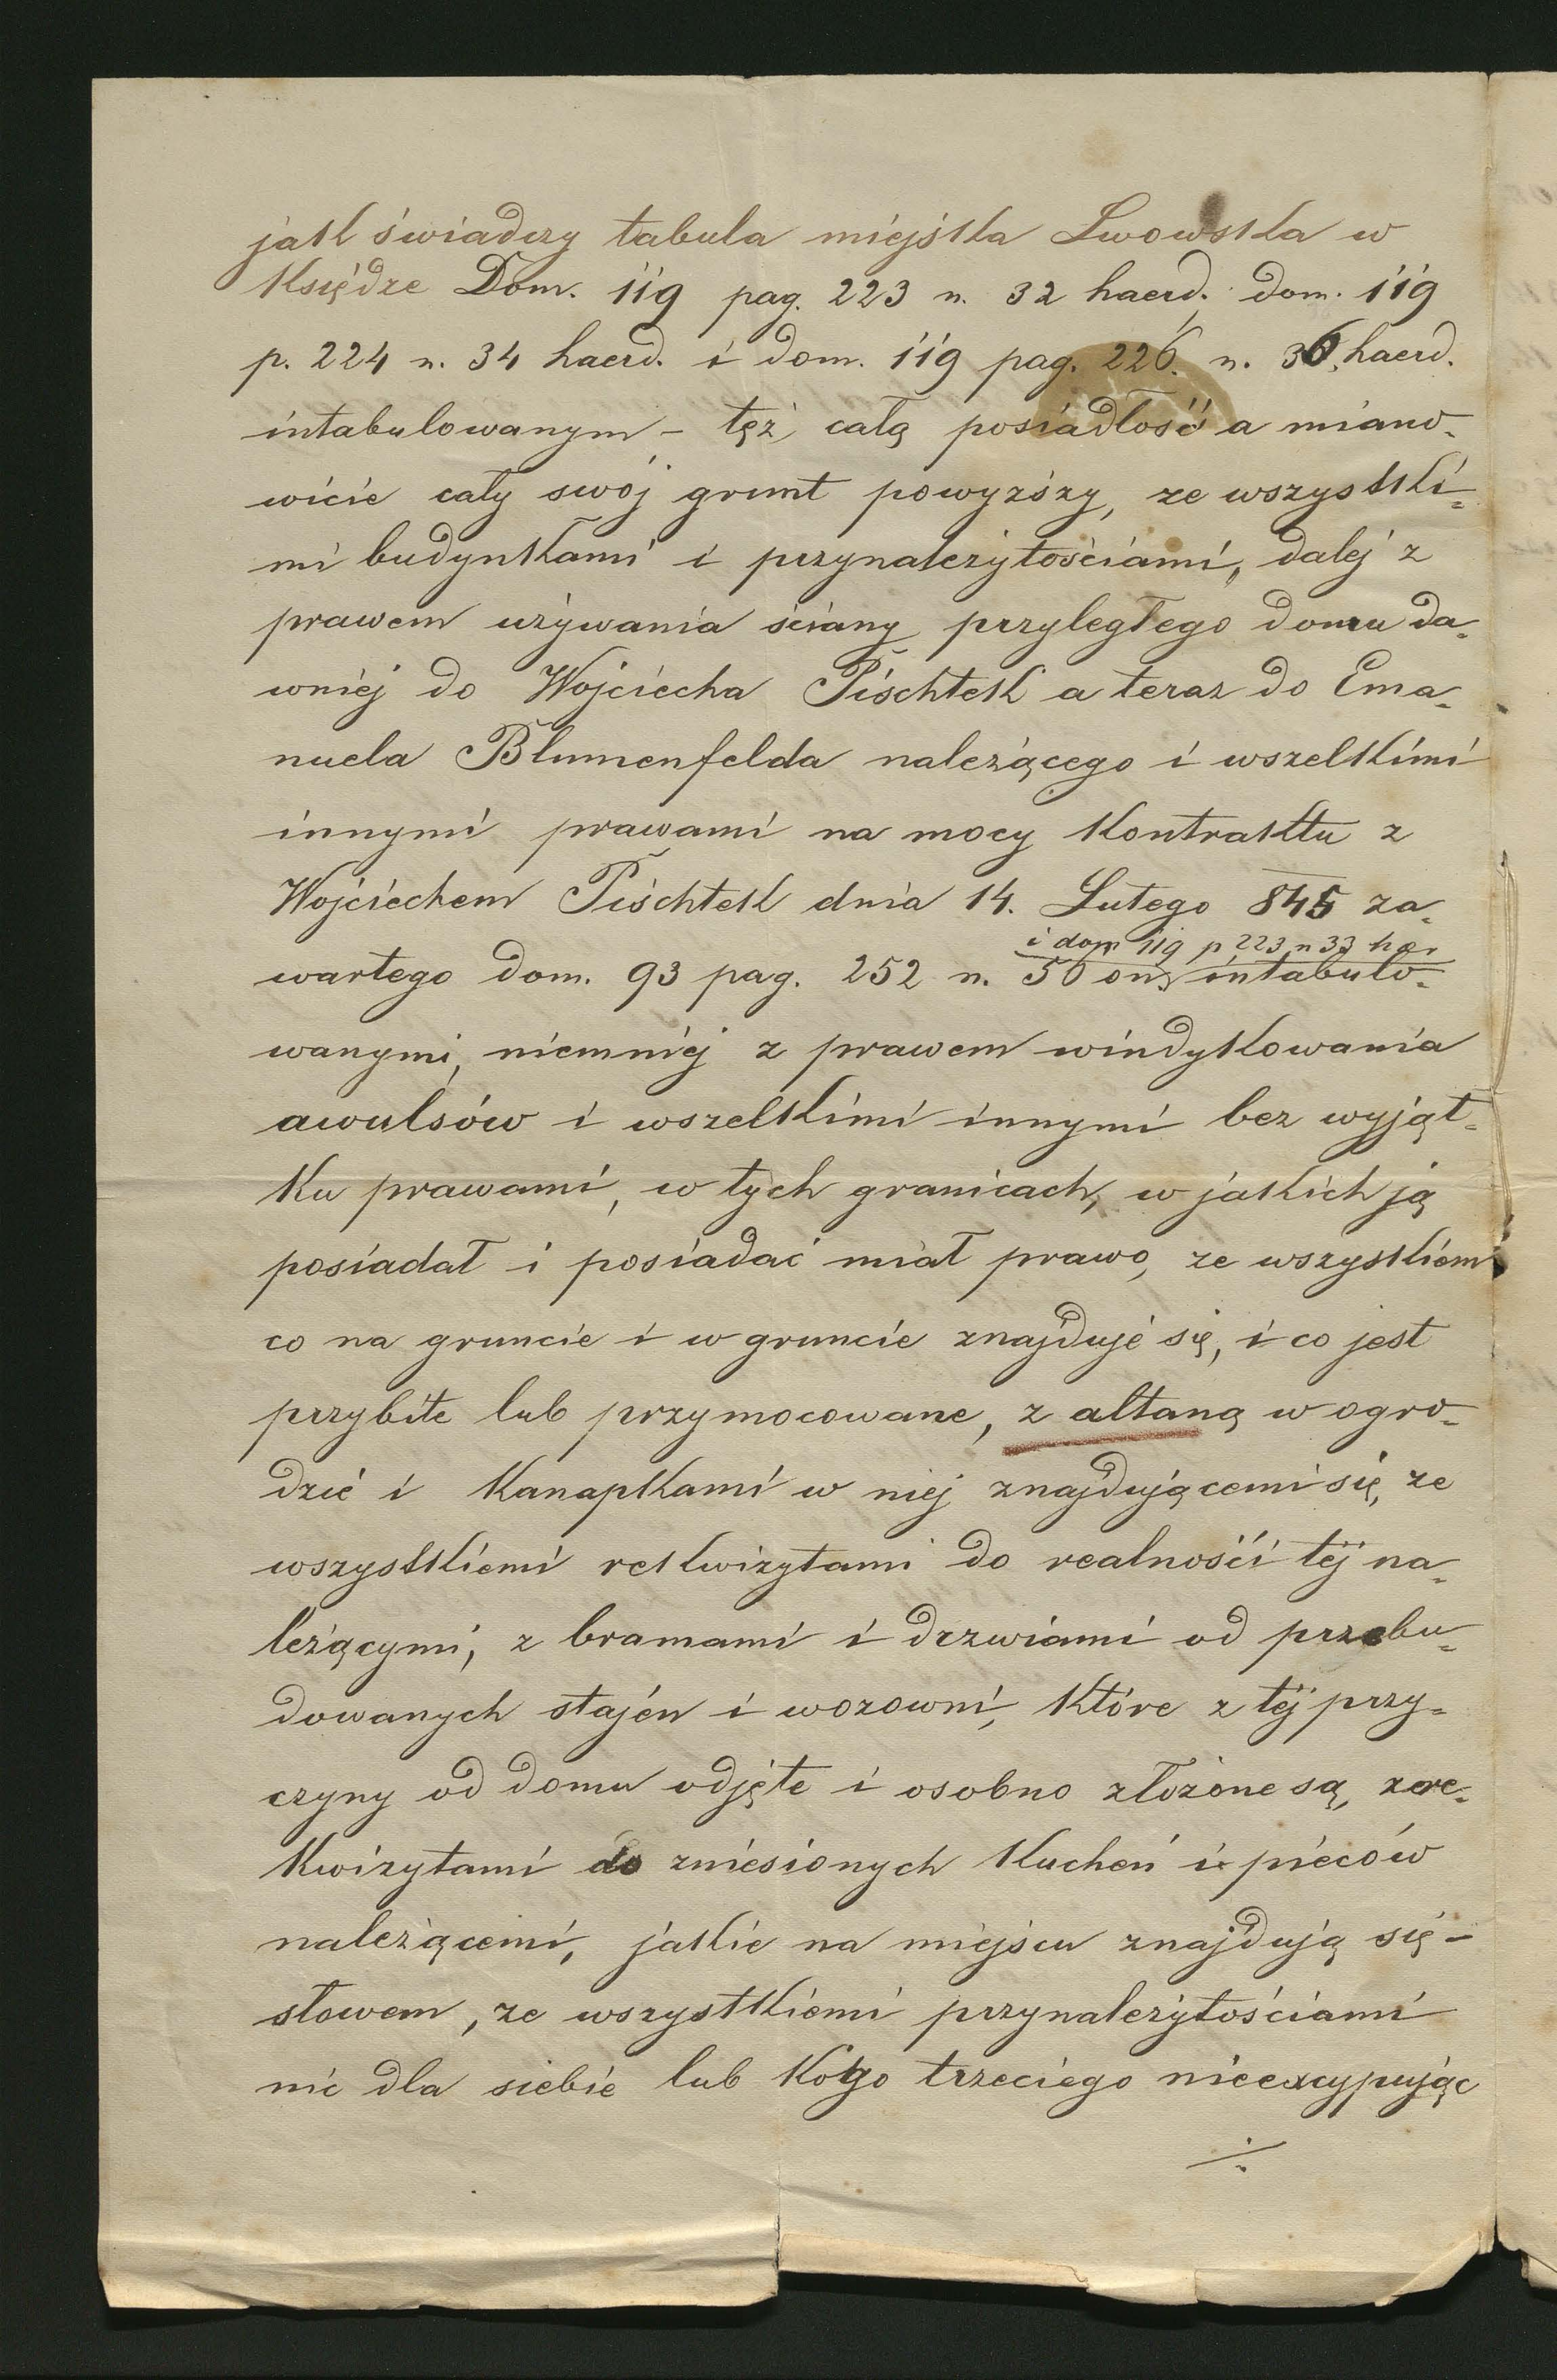 jak świadczy tabula miejska Lwowska w
Księdze Dom. 119 pag. 223 n. 32 haerd. dom. 119
p. 224 n. 34 haerd. i dom. 119 pag. 226. n. 36. haerd.
intabulowanym – tęż całą posiadłość a miano-
wicie cały swój grunt powyższy, ze wszystki-
mi budynkami i przynależytościami, dalej z
prawem używania ściany przyległego domu da-
wniej do Wojciecha Pischtek a teraz do Ema-
nuela Blumenfelda należącego i wszelkimi
innymi prawami na mocy Kontraktu z
Wojciechem Pischtek dnia 14. Lutego 845 za-
i dom 119 p 223 n 33 hær
wartego dom. 93 pag. 252 n. 50 on. intabulo-
wanymi, niemniej z prawem windykowania
awulsów i wszelkimi innymi bez wyjąt-
ku prawami, w tych granicach, w jakich ją
posiadał i posiadać miał prawo, ze wszystkiem
co na gruncie i w gruncie znajduje się, i co jest
przybite lub przymocowane, z altaną w ogro-
dzie i Kanapkami w niej znajdującemi się, ze
wszystkiemi rekwizytami do realności téj na-
leżącymi, z bramami i drzwiami od przebu-
dowanych stajen i wozowni, które z téj przy-
czyny od domu odjęte i osobno złożone są, z re-
kwizytami do zniesionych Kucheń i pieców
należącemi, jakie na miejscu znajdują się –
słowem, ze wszystkiemi przynależytościami
nic dla siebie lub Kogo trzeciego nieexcypując
·/.